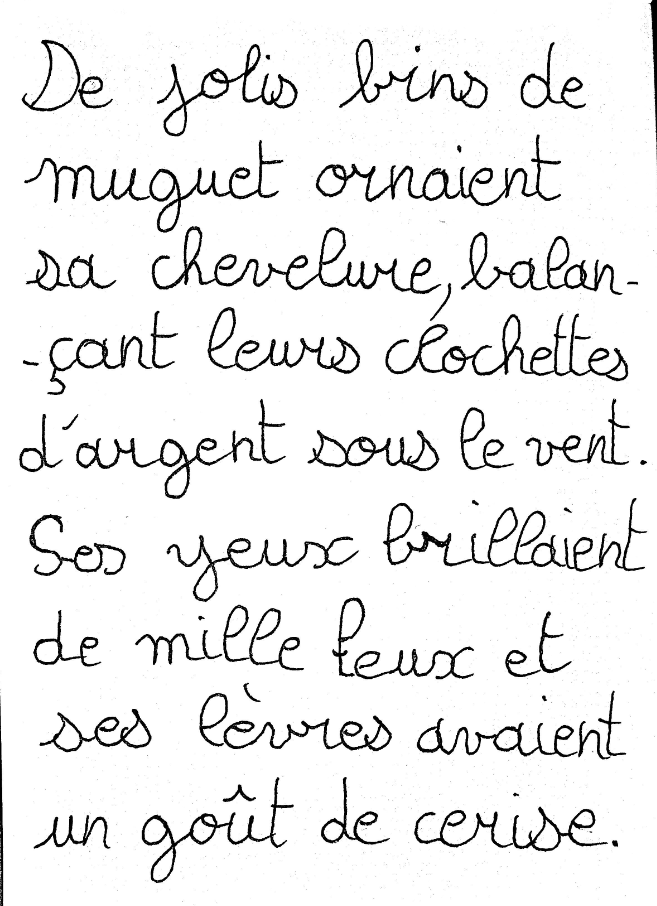 De jolis brins de
muguet ornaient
sa chevelure, balan-
-çant leurs clochettes
d'argent sous le vent.
Ses yeux brillaient
de mille feux et
ses lèvres avaient
un goût de cerise.